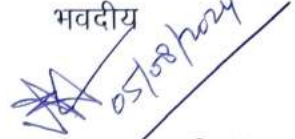 भवदीय
05/08/2024